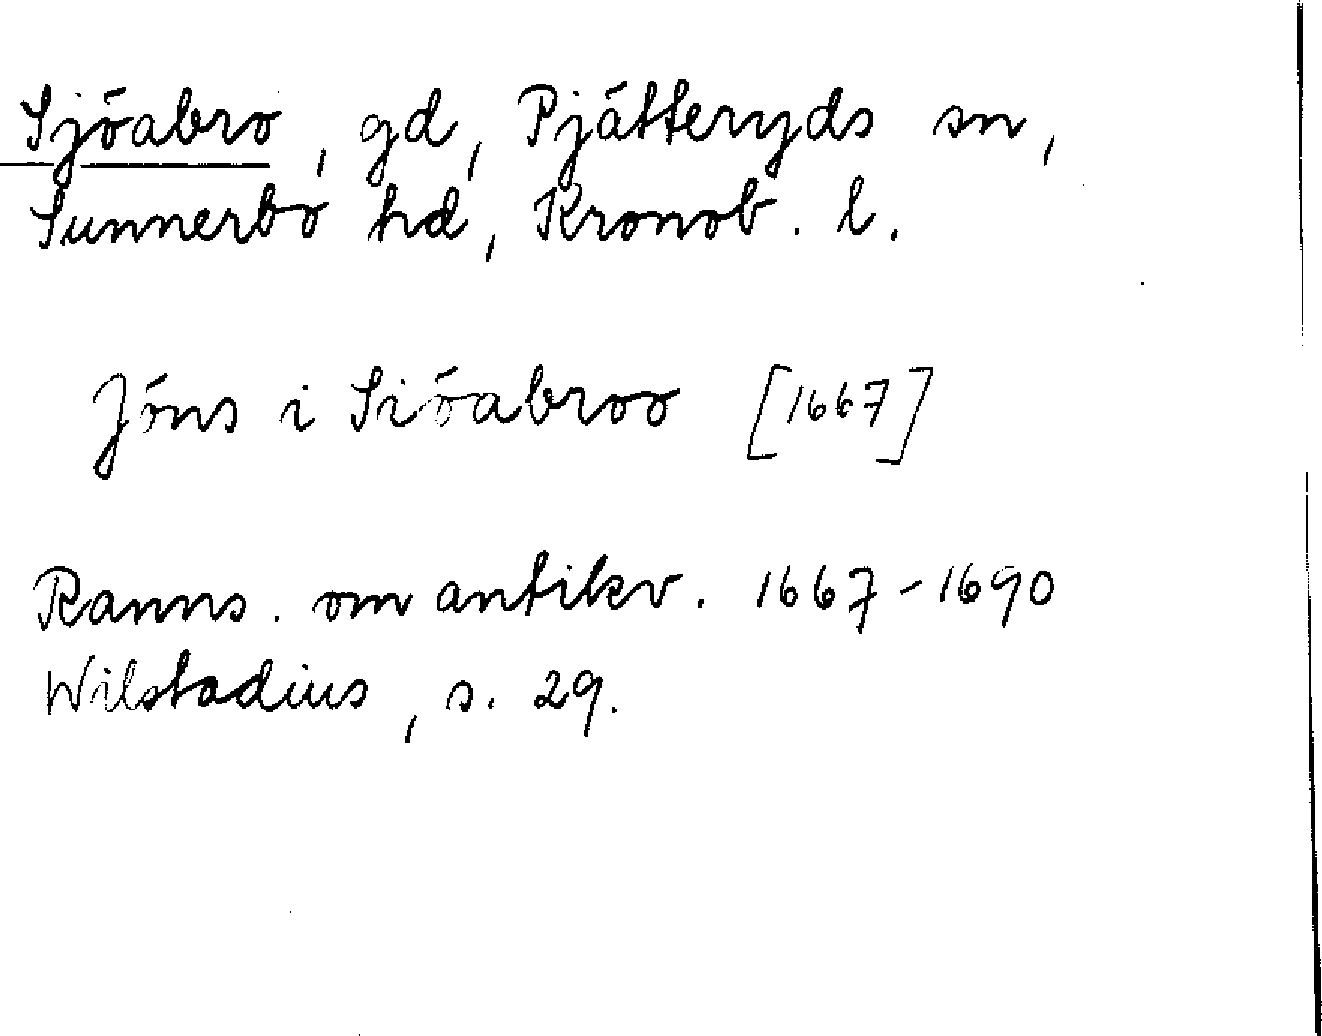 Sjöabro, gd, Pjätteryds sn,
Sunnerbo hd, Kronob. l.
Jöns i Siöabroo [1667]
Ranns. om antikv. 1667-1690
Wilstadius, s. 29.